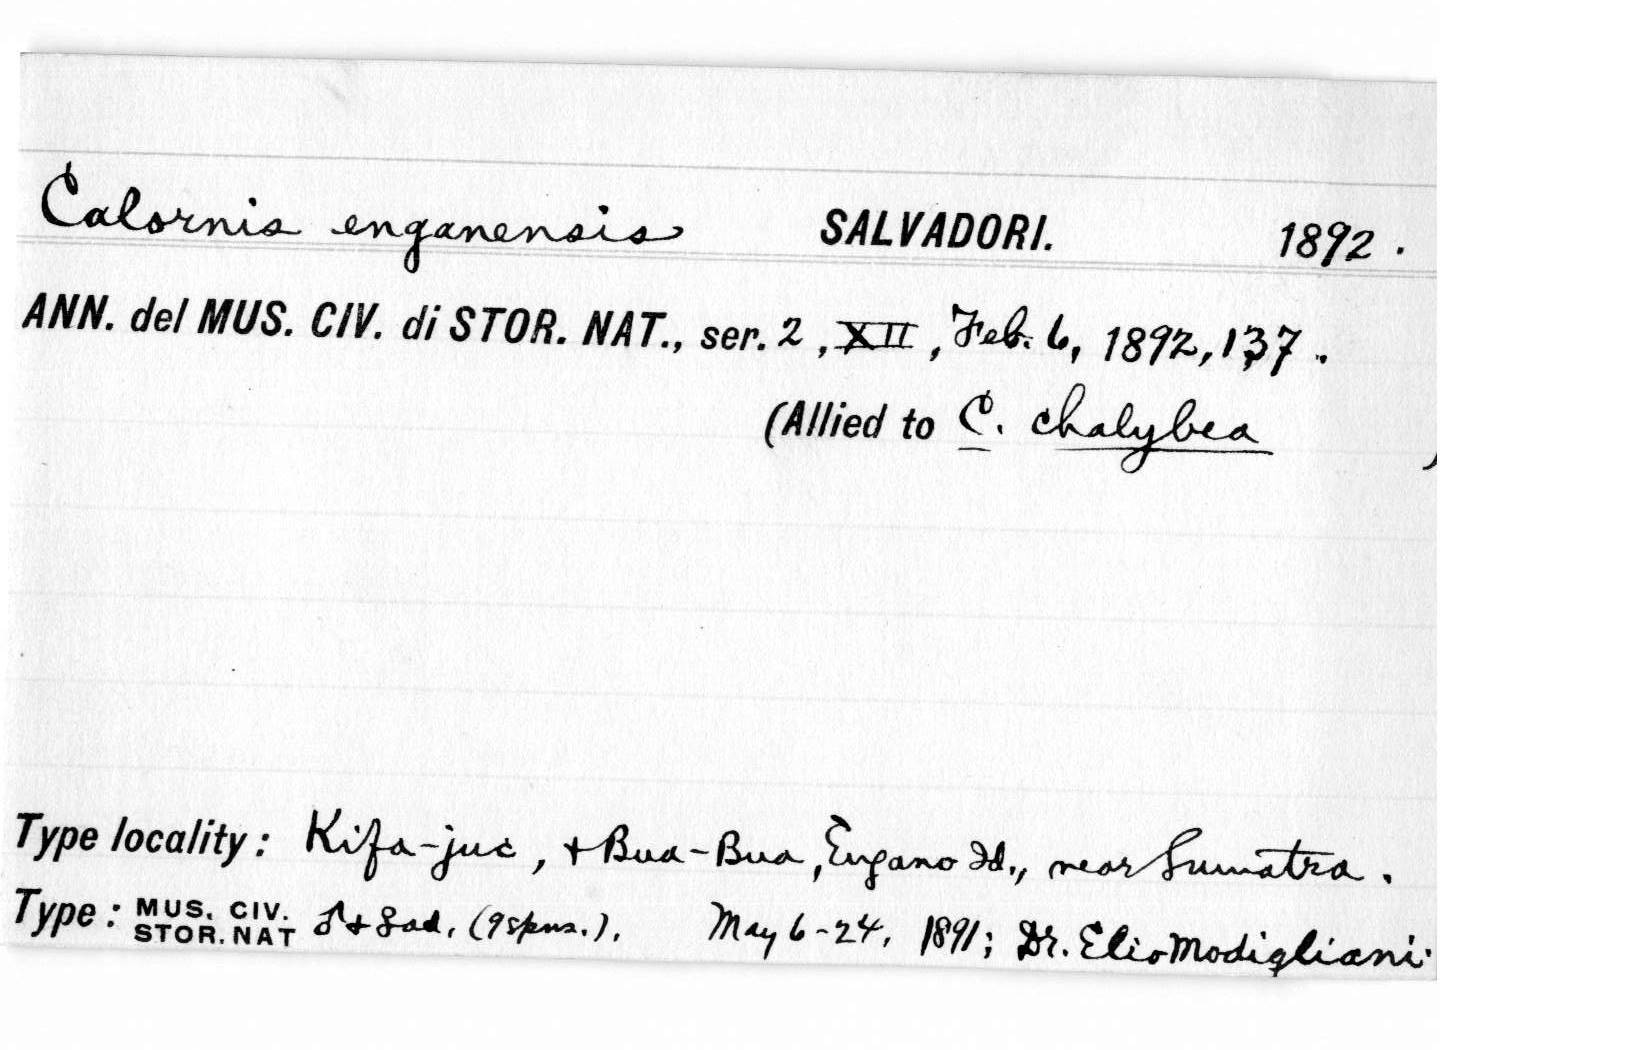 Calornis enganensis SALVADORI. 1892.
ANN. del MUS. CIV. di STOR. NAT., ser. 2, XII, Feb. 6, 1892, 137.
(Allied to C. chalybea )
Type locality: Kifa-juc, + Bua-Bua, Engano Id., near Sumatra.
Type: MUS. CIV. STOR. NAT ♂ + ♀ ad. (9 spns.). May 6-24, 1891; Dr. Elio Modigliani.